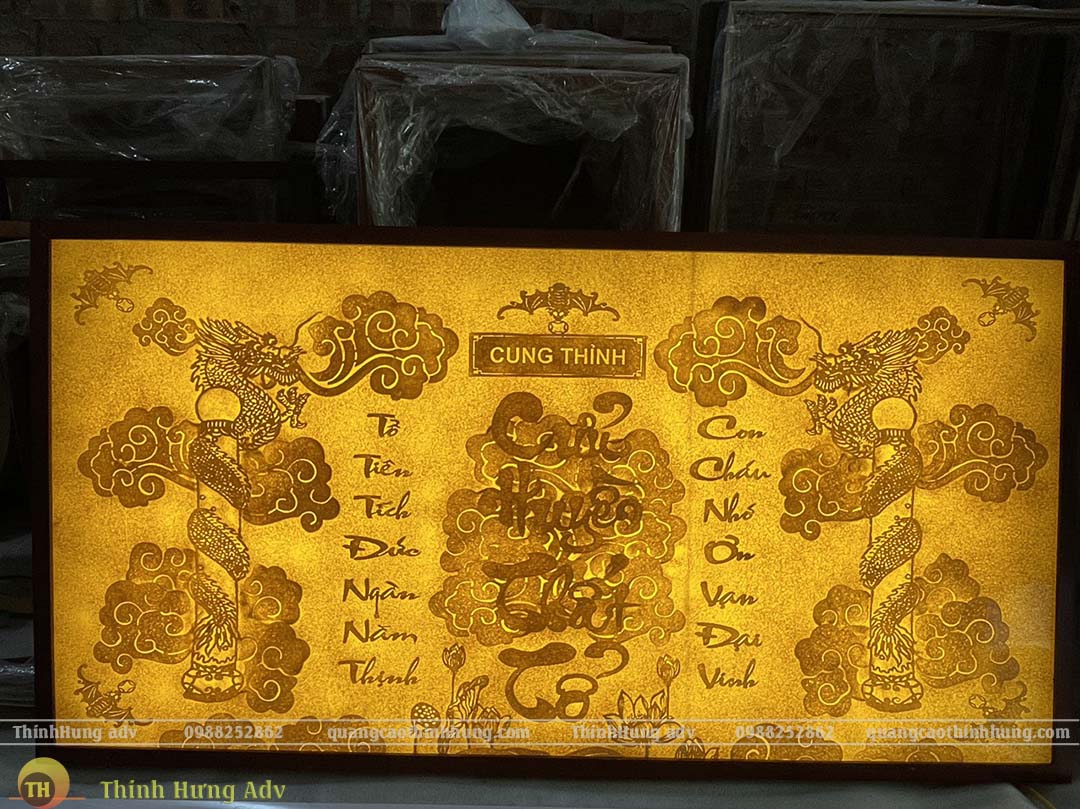 CUNG THỈNH
Cửu
Huyền
Thất
Tổ
Tổ
Tiên
Tích
Đức
Ngàn
Năm
Thịnh
Con
Cháu
Nhớ
Ơn
Vạn
Đại
Vinh
ThinhHung adv 0988252862 quangcaothinhhung.com ThinhHung adv 0988252862 quangcaothinhhung.com
TH Thịnh Hưng Adv